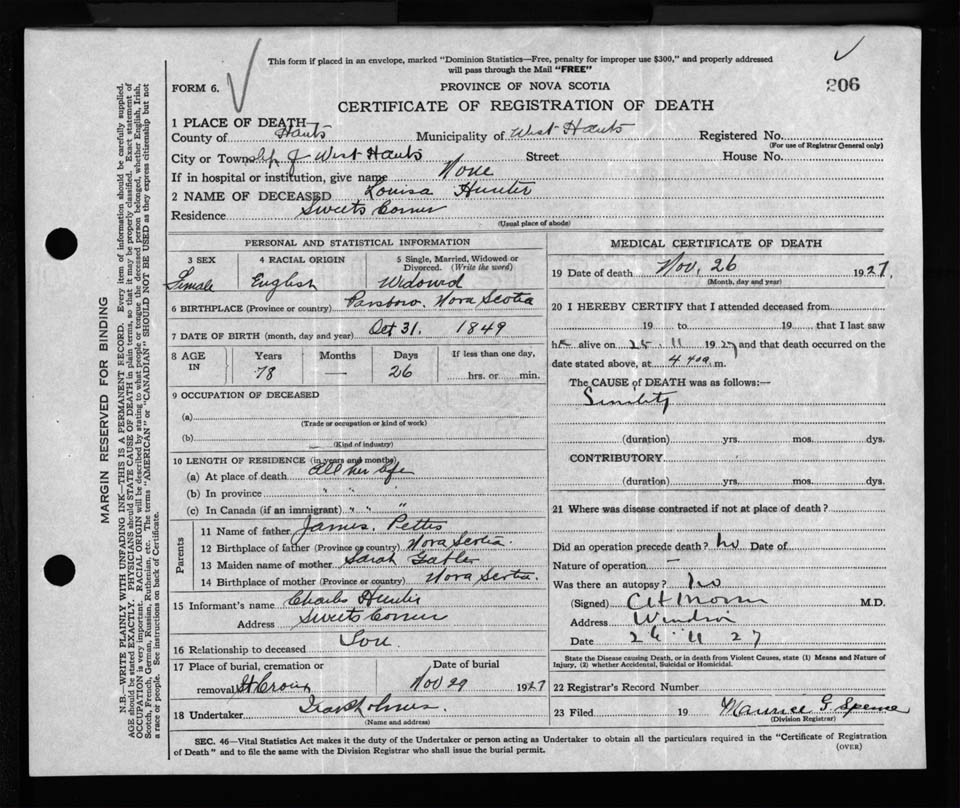 This form if placed in an envelope, marked "Dominion Statistics—Free, penalty for improper use $300," and properly addressed
will pass through the Mail "FREE"
FORM 6.
PROVINCE OF NOVA SCOTIA
206
CERTIFICATE OF REGISTRATION OF DEATH
1 PLACE OF DEATH
County of Hants Municipality of West Hants Registered No.
(For use of Registrar General only)
City or Township of West Hants Street House No.
If in hospital or institution, give name None
2 NAME OF DECEASED Louisa Hunter
Residence Sweets Corner
(Usual place of abode)
PERSONAL AND STATISTICAL INFORMATION
3 SEX 4 RACIAL ORIGIN 5 Single, Married, Widowed or
Divorced. (Write the word)
Female English Widowed
6 BIRTHPLACE (Province or country) Parrsboro. Nova Scotia
7 DATE OF BIRTH (month, day and year) Oct 31. 1849
8 AGE IN Years Months Days If less than one day,
78 — 26 hrs. or min.
9 OCCUPATION OF DECEASED
(a)
(Trade or occupation or kind of work)
(b)
(Kind of industry)
10 LENGTH OF RESIDENCE (in years and months)
(a) At place of death all her life
(b) In province " " "
(c) In Canada (if an immigrant) " " "
Parents
11 Name of father James. Pettis
12 Birthplace of father (Province or country) Nova Scotia.
13 Maiden name of mother Sarah
14 Birthplace of mother (Province or country) Nova Scotia.
15 Informant's name Charles Hunter
Address Sweets Corner
16 Relationship to deceased Son
17 Place of burial, cremation or Date of burial
removal St Croix Nov 29 1927
18 Undertaker
(Name and address)
MEDICAL CERTIFICATE OF DEATH
19 Date of death Nov. 26 1927.
(Month, day and year)
20 I HEREBY CERTIFY that I attended deceased from
19 to 19 that I last saw
her alive on 25 11 1927 and that death occurred on the
date stated above, at 4.40a.m.
The CAUSE of DEATH was as follows:—
Senility
(duration) yrs. mos. dys.
CONTRIBUTORY
(duration) yrs. mos. dys.
21 Where was disease contracted if not at place of death?
Did an operation precede death? no Date of
Nature of operation —
Was there an autopsy? no
(Signed) M.D.
Address Windsor
Date 26 11 27
State the Disease causing Death, or in death from Violent Causes, state (1) Means and Nature of
Injury, (2) whether Accidental, Suicidal or Homicidal.
22 Registrar's Record Number
23 Filed 19 Maurice G. Spence
(Division Registrar)
SEC. 46—Vital Statistics Act makes it the duty of the Undertaker or person acting as Undertaker to obtain all the particulars required in the "Certificate of Registration
of Death" and to file the same with the Division Registrar who shall issue the burial permit.
(OVER)
MARGIN RESERVED FOR BINDING
N.B.—WRITE PLAINLY WITH UNFADING INK—THIS IS A PERMANENT RECORD. Every item of information should be carefully supplied.
AGE should be stated EXACTLY. PHYSICIANS should STATE CAUSE OF DEATH in plain terms, so that it may be properly classified. Exact statement of
OCCUPATION is very important. RACIAL ORIGIN will be described by stating to what people or tongue the deceased person belonged, whether English, Irish,
Scotch, French, German, Russian, Ruthenian, etc. The terms "AMERICAN" or "CANADIAN" SHOULD NOT BE USED as they express citizenship but not
a race or people. See instructions on back of Certificate.